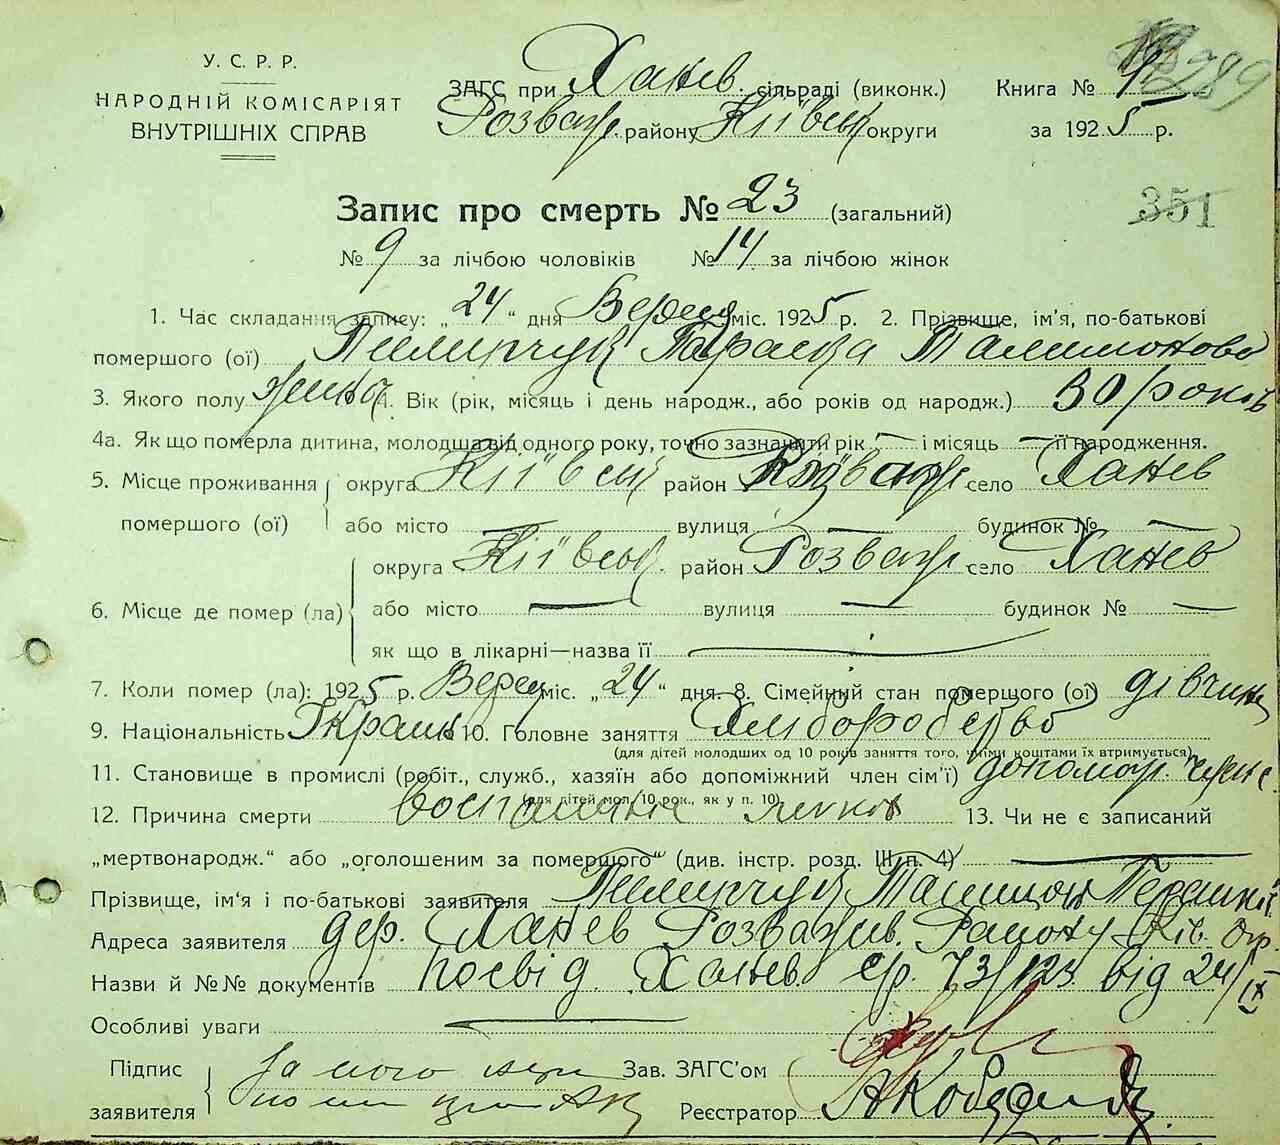 У. С. Р. Р.
НАРОДНІЙ КОМІСАРІЯТ
ВНУТРІШНІХ СПРАВ
ЗАГС при Ханев. сільраді (виконк.)
Розваж. району Київськ округи
Книга №
за 1925 р.
Запис про смерть № 23 (загальний)
351
№ 9 за лічбою чоловіків № 14 за лічбою жінок
1. Час складання запису: „24“ дня Вересня міс. 1925 р. 2. Прізвище, ім'я, по-батькові
помершого (ої) Пилипчук Параска
3. Якого полу 4. Вік (рік, місяць і день народж., або років од народж.) 30 років
4а. Як що померла дитина, молодша від одного року, точно зазначити рік — і місяць — її народження.
5. Місце проживання помершого (ої) округа Київськ район Розваж село Ханев
або місто — вулиця — будинок № —
6. Місце де помер (ла) округа Київськ. район Розваж село Ханев
або місто — вулиця — будинок № —
як що в лікарні—назва її —
7. Коли помер (ла): 1925 р. Верес міс. „24“ дня. 8. Сімейний стан помершого (ої) дівчина
9. Національність Украін 10. Головне заняття Хліборобство
(для дітей молодших од 10 років заняття того, чиїми коштами їх втримується)
11. Становище в промислі (робіт., служб., хазяїн або допоміжний член сім'ї) допомаг. член
(для дітей мол. 10 рок., як у п. 10)
12. Причина смерти воспаленіе легких 13. Чи не є записаний
„мертвонародж.“ або „оголошеним за помершого“ (див. інстр. розд. III п. 4) —
Прізвище, ім'я і по-батькові заявителя Пилипчук
Адреса заявителя дер. Ханев Розважів. Району Київ. Окр
Назви й №№ документів посвід. Ханев. с/р. 73/123 від 24/IX
Особливі уваги —
Підпис заявителя
Зав. ЗАГС'ом
Реєстратор